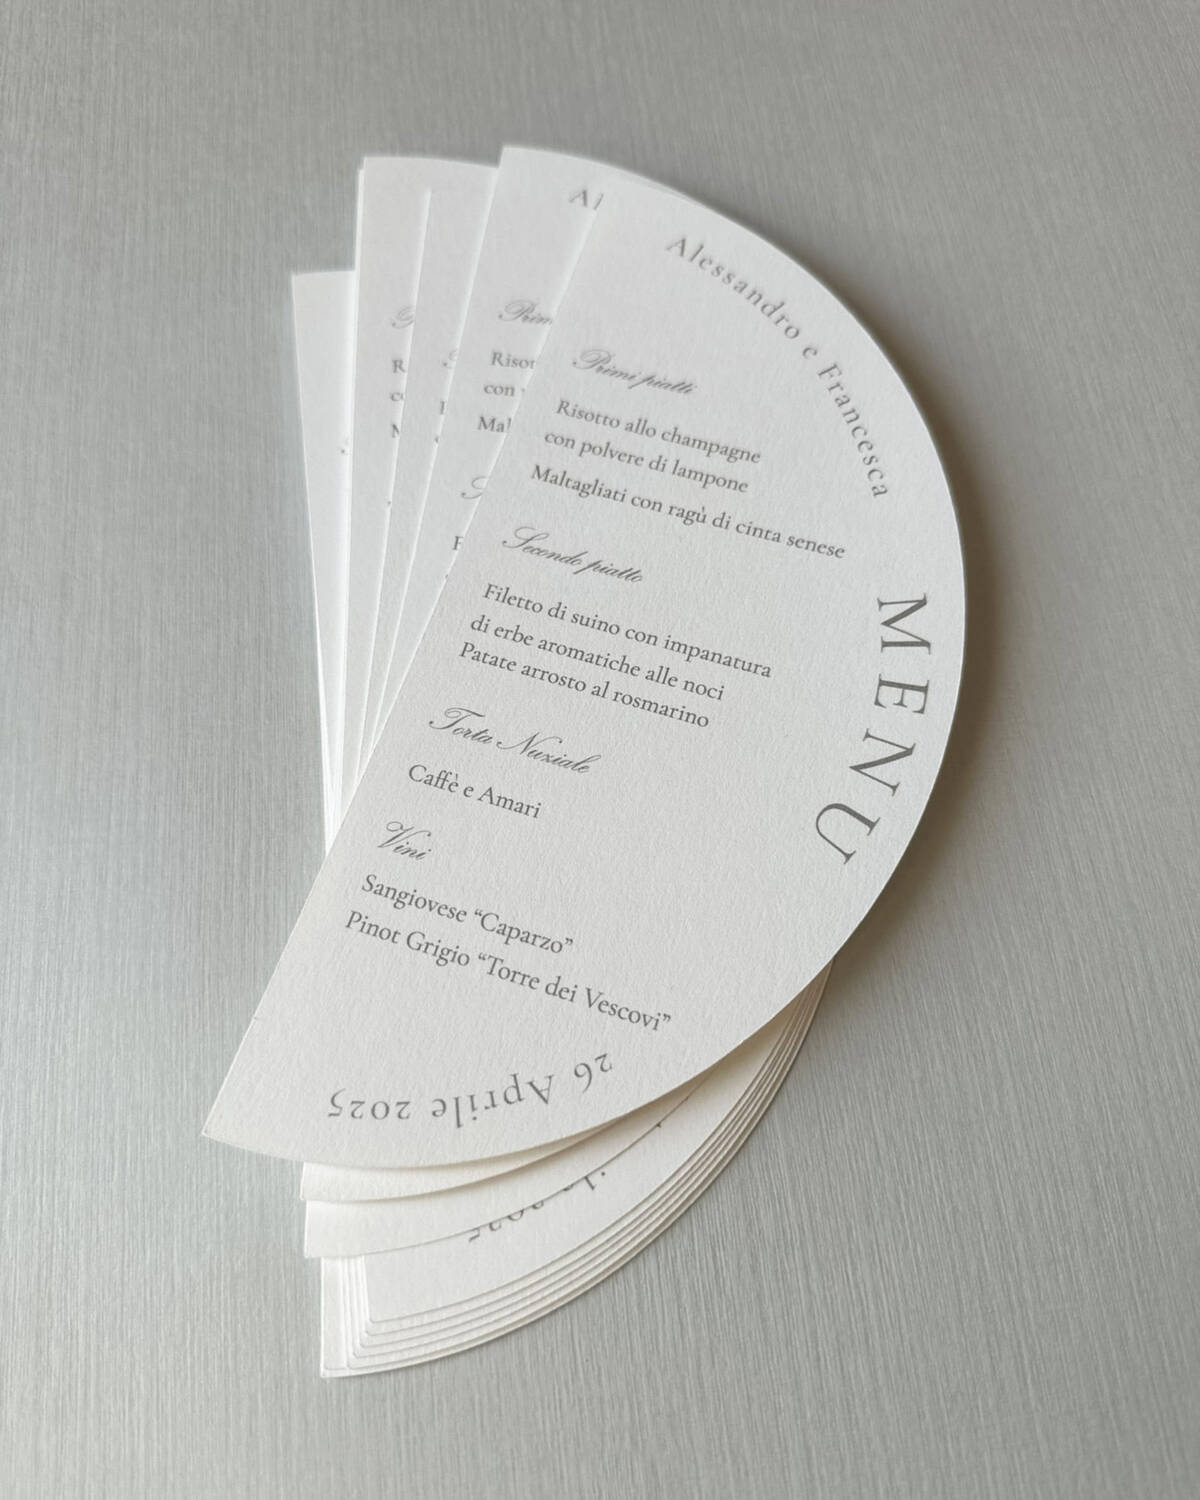 Alessandro e Francesca
MENU
Primi piatti
Risotto allo champagne
con polvere di lampone
Maltagliati con ragù di cinta senese
Secondo piatto
Filetto di suino con impanatura
di erbe aromatiche alle noci
Patate arrosto al rosmarino
Torta Nuziale
Caffè e Amari
Vini
Sangiovese “Caparzo”
Pinot Grigio “Torre dei Vescovi”
26 Aprile 2025